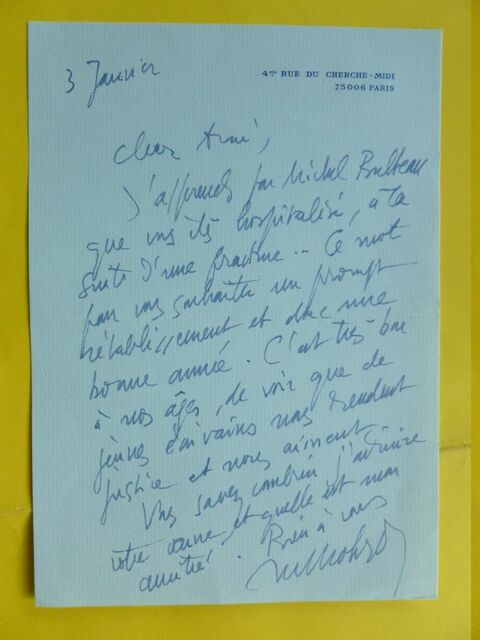 3 Janvier
4bis RUE DU CHERCHE-MIDI
75006 PARIS
Cher Ami,
J'apprends par Michel Bulteau
que vous êtes hospitalisé, à la
suite d'une fracture... Ce mot
pour vous souhaiter un prompt
rétablissement et donc une
bonne année. C'est très bon
à nos âges, de voir que de
jeunes écrivains nous rendent
justice et nous aiment.
Vous savez combien j'admire
votre œuvre, et quelle est mon
amitié. Bien à vous